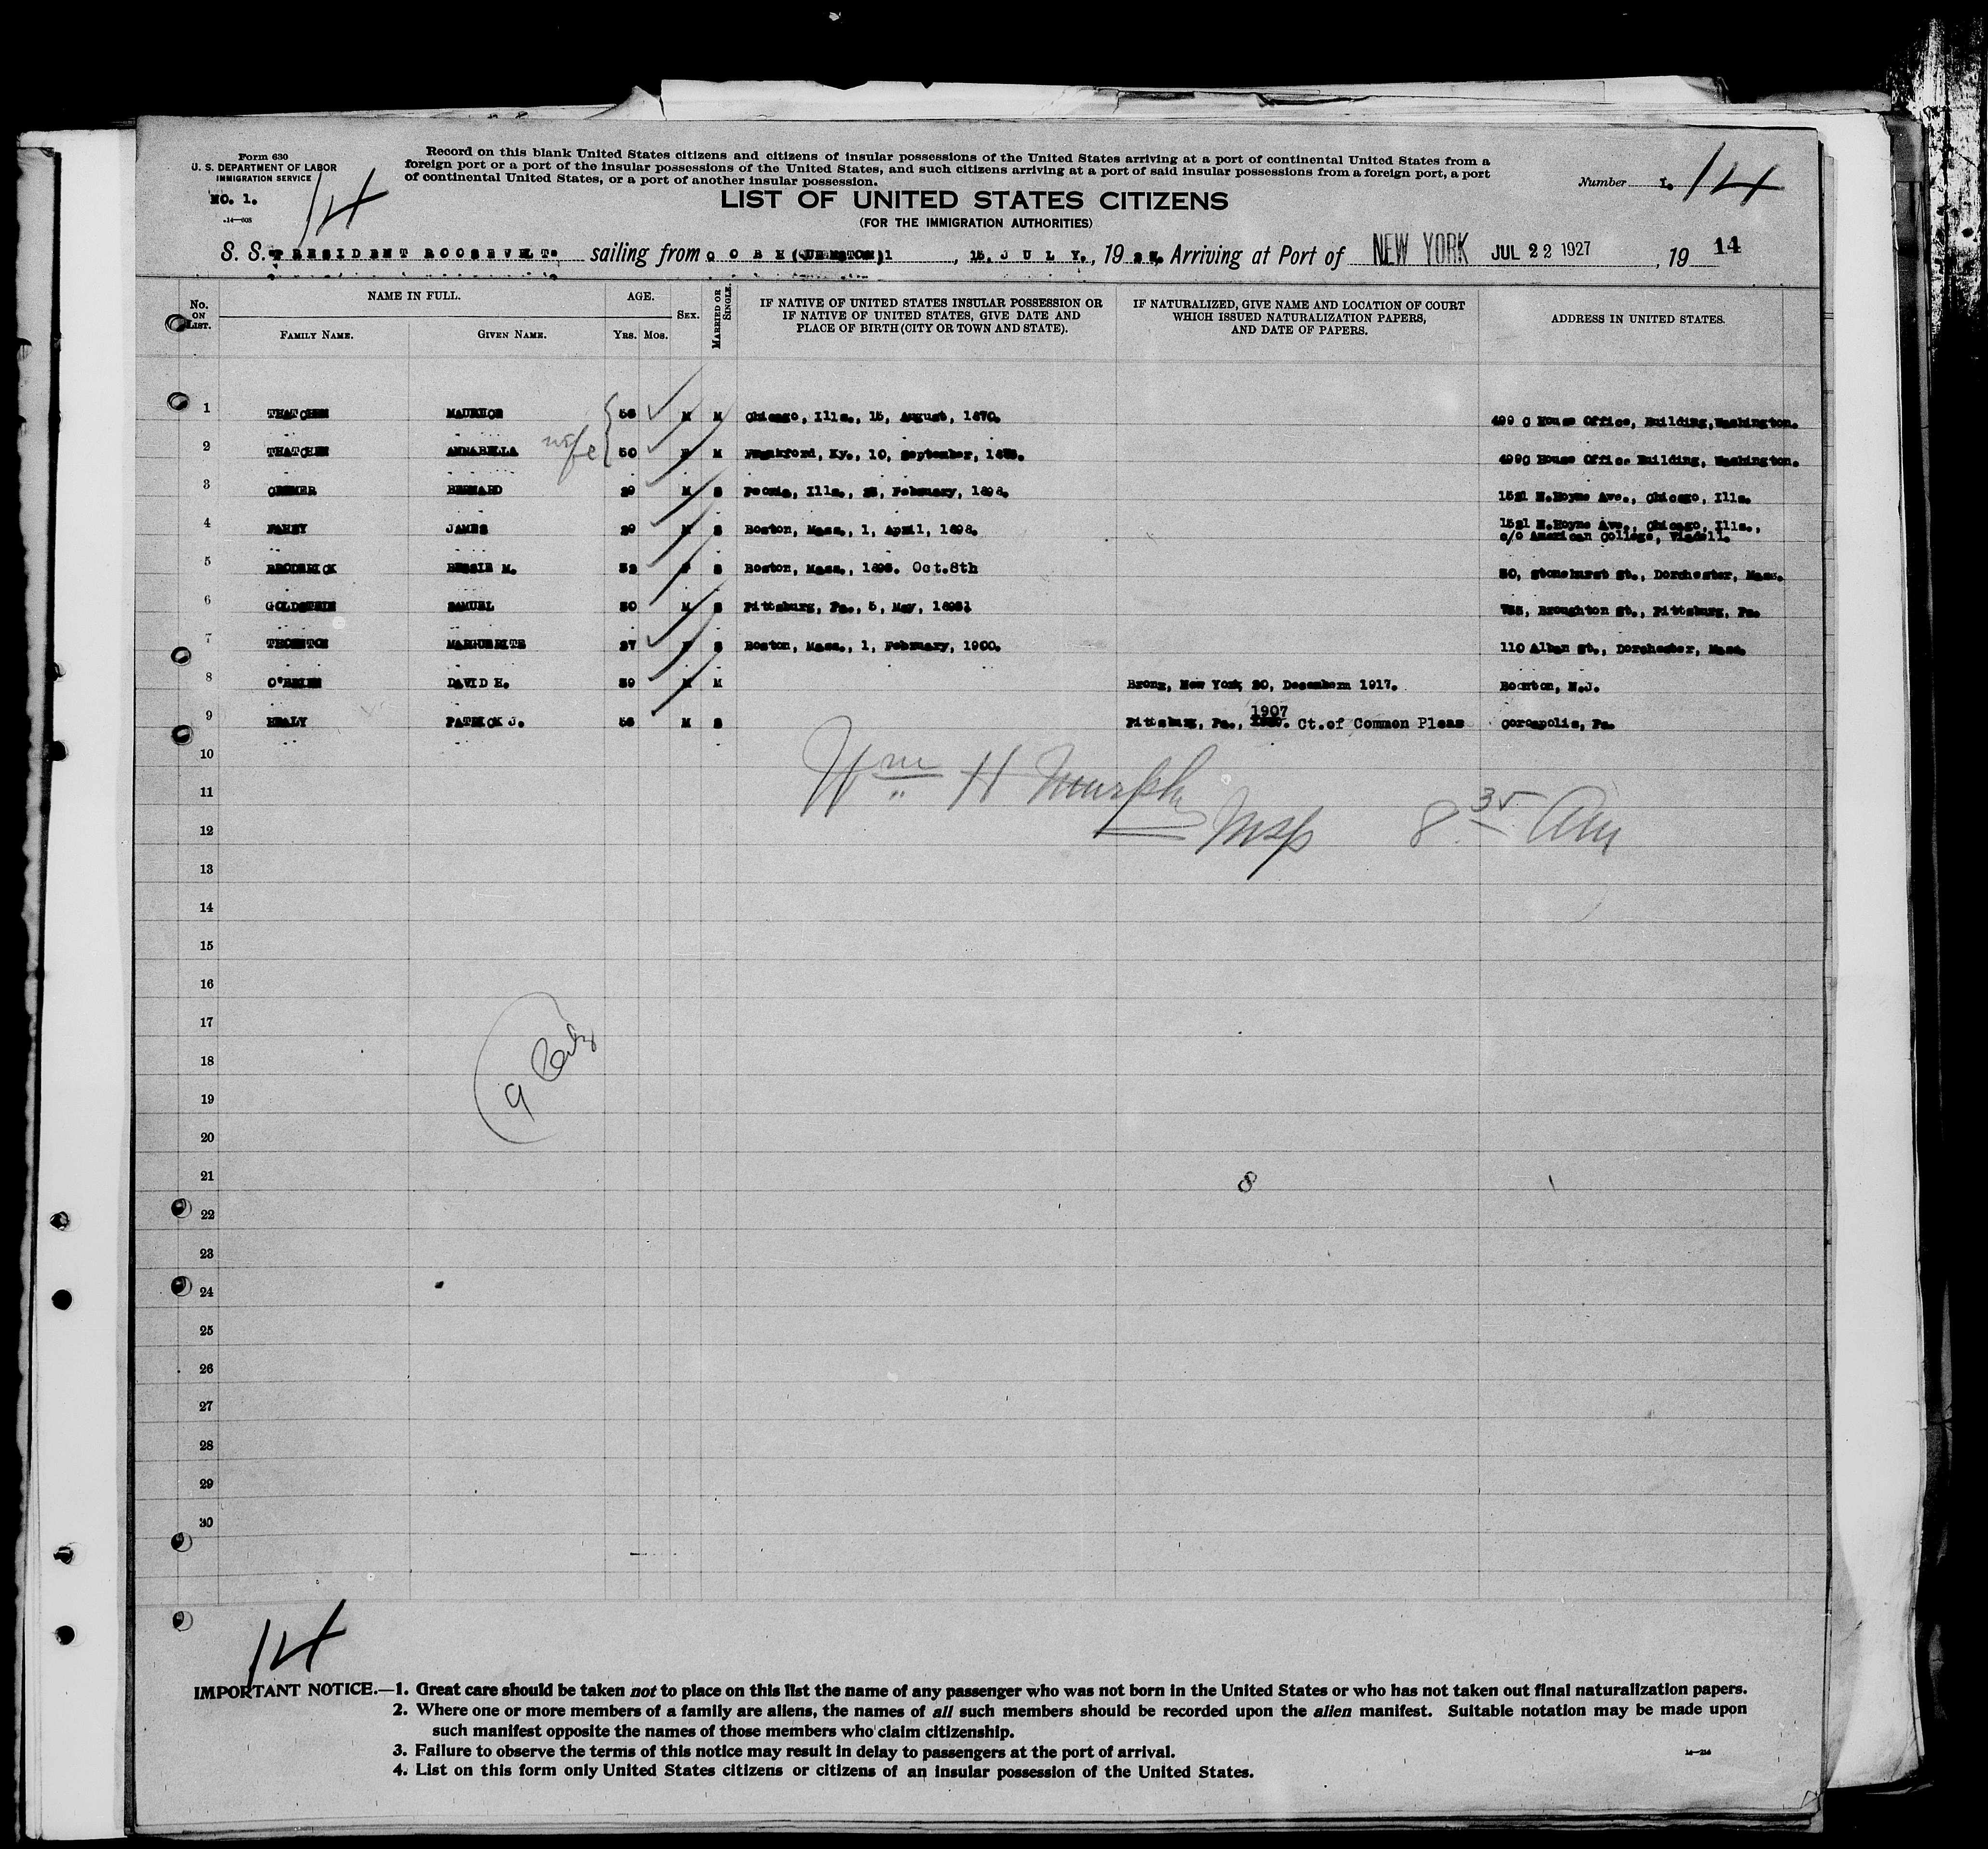 Form 630
U. S. DEPARTMENT OF LABOR
IMMIGRATION SERVICE
NO. 1.
14
Record on this blank United States citizens and citizens of insular possessions of the United States arriving at a port of continental United States from a
foreign port or a port of the insular possessions of the United States, and such citizens arriving at a port of said insular possessions from a foreign port, a port
of continental United States, or a port of another insular possession.
Number 1. 14
LIST OF UNITED STATES CITIZENS
(FOR THE IMMIGRATION AUTHORITIES)
S. S. PRESIDENT ROOSEVELT. sailing from (QUEENSTOWN), 15, JULY., 19 27, Arriving at Port of NEW YORK JUL 22 1927, 19 14
No. ON LIST.
NAME IN FULL.
FAMILY NAME.
GIVEN NAME.
AGE.
YRS. MOS.
SEX.
MARRIED OR SINGLE.
IF NATIVE OF UNITED STATES INSULAR POSSESSION OR
IF NATIVE OF UNITED STATES, GIVE DATE AND
PLACE OF BIRTH (CITY OR TOWN AND STATE).
IF NATURALIZED, GIVE NAME AND LOCATION OF COURT
WHICH ISSUED NATURALIZATION PAPERS,
AND DATE OF PAPERS.
ADDRESS IN UNITED STATES.
1 THATCHER MAURICE 56 M M Chicago, Ills., 15, August, 1870. 499 C House Office, Building, Washington.
2 THATCHER ANNABELLA wife 50 F M Frankford, Ky., 10, September, 499C House Office Building, Washington.
3 CREMER BERNARD 29 M S Peoria, Ills., February, 1898. 1521 N.Hoyne Ave., Chicago, Ills.
4 FAHEY JAMES 29 M S Boston, Mass., 1, April, 1898. 1521 N.Hoyne Ave., Chicago, Ills.,
c/o American College,
5 BRODERICK BESSIE M. 32 F S Boston, Mass., Oct.8th 30, Stonehurst St., Dorchester, Mass.
6 GOLDSTEIN SAMUEL 30 M S Pittsburg, Pa., 5, May, Broughton St., Pittsburg, Pa.
7 THORNTON MARGUERITE 27 F S Boston, Mass., 1, February, 1900. 110 Alban St., Dorchester, Mass.
8 O'BRIEN DAVID H. 39 M M Bronx, New York, 20, December 1917. Boonton, N.J.
9 HEALY PATRICK J. 56 M S Pittsburg, Pa., 1907 Ct.of Common Pleas Coroapolis, Pa.
10
11
12
Wm H Murphy
Msp
8 35 Am
13
14
15
16
17
18
19
9
20
21
8
22
23
24
25
26
27
28
29
30
14
IMPORTANT NOTICE.—1. Great care should be taken not to place on this list the name of any passenger who was not born in the United States or who has not taken out final naturalization papers.
2. Where one or more members of a family are aliens, the names of all such members should be recorded upon the alien manifest. Suitable notation may be made upon
such manifest opposite the names of those members who claim citizenship.
3. Failure to observe the terms of this notice may result in delay to passengers at the port of arrival.
4. List on this form only United States citizens or citizens of an insular possession of the United States.